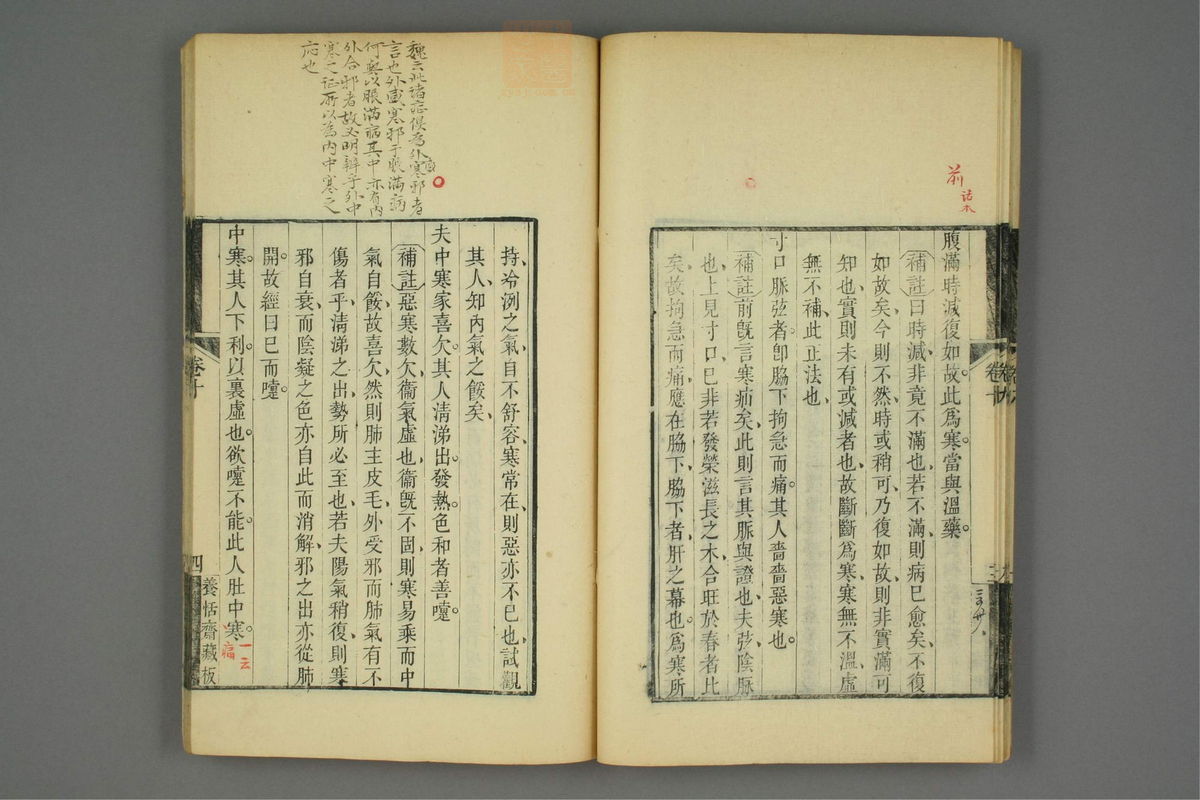 腹滿時減復如故此爲寒當與溫藥
補註曰時減非竟不滿也若不滿則病已愈矣不復
如故矣今則不然時或稍可乃復如故則非實滿可
知也實則未有或減者也故斷斷爲寒寒無不溫虛
無不補此正法也
寸口脈弦者卽脇下拘急而痛其人嗇嗇惡寒也
補註前旣言寒疝矣此則言其脈與證也夫弦陰脈
也上見寸口巳非若發榮滋長之木合旺於春者比
矣故拘急而痛應在脇下脇下者肝之募也爲寒所
持冷洌之氣自不舒容寒常在則惡亦不已也試觀
其人知內氣之餒矣
夫中寒家喜欠其人清涕出發熱色和者善嚏
補註惡寒數欠衞氣虛也衞旣不固則寒易乘而中
氣自餒故喜欠然則肺主皮毛外受邪而肺氣有不
傷者乎清涕之出勢所必至也若夫陽氣稍復則寒
邪自衰而陰凝之色亦自此而消解邪之出亦從肺
開故經曰巳而嚏
中寒其人下利以裏虛也欲嚏不能此人肚中寒
一云
痛
卷十
四
養恬齋藏板
魏云此諸症候爲外寒邪者
言也外感寒邪于脹滿病
何與以脹滿病其中亦有內
外合邪者故又明辯乎外中
寒之証所以爲內中寒之
応也
前
卷十